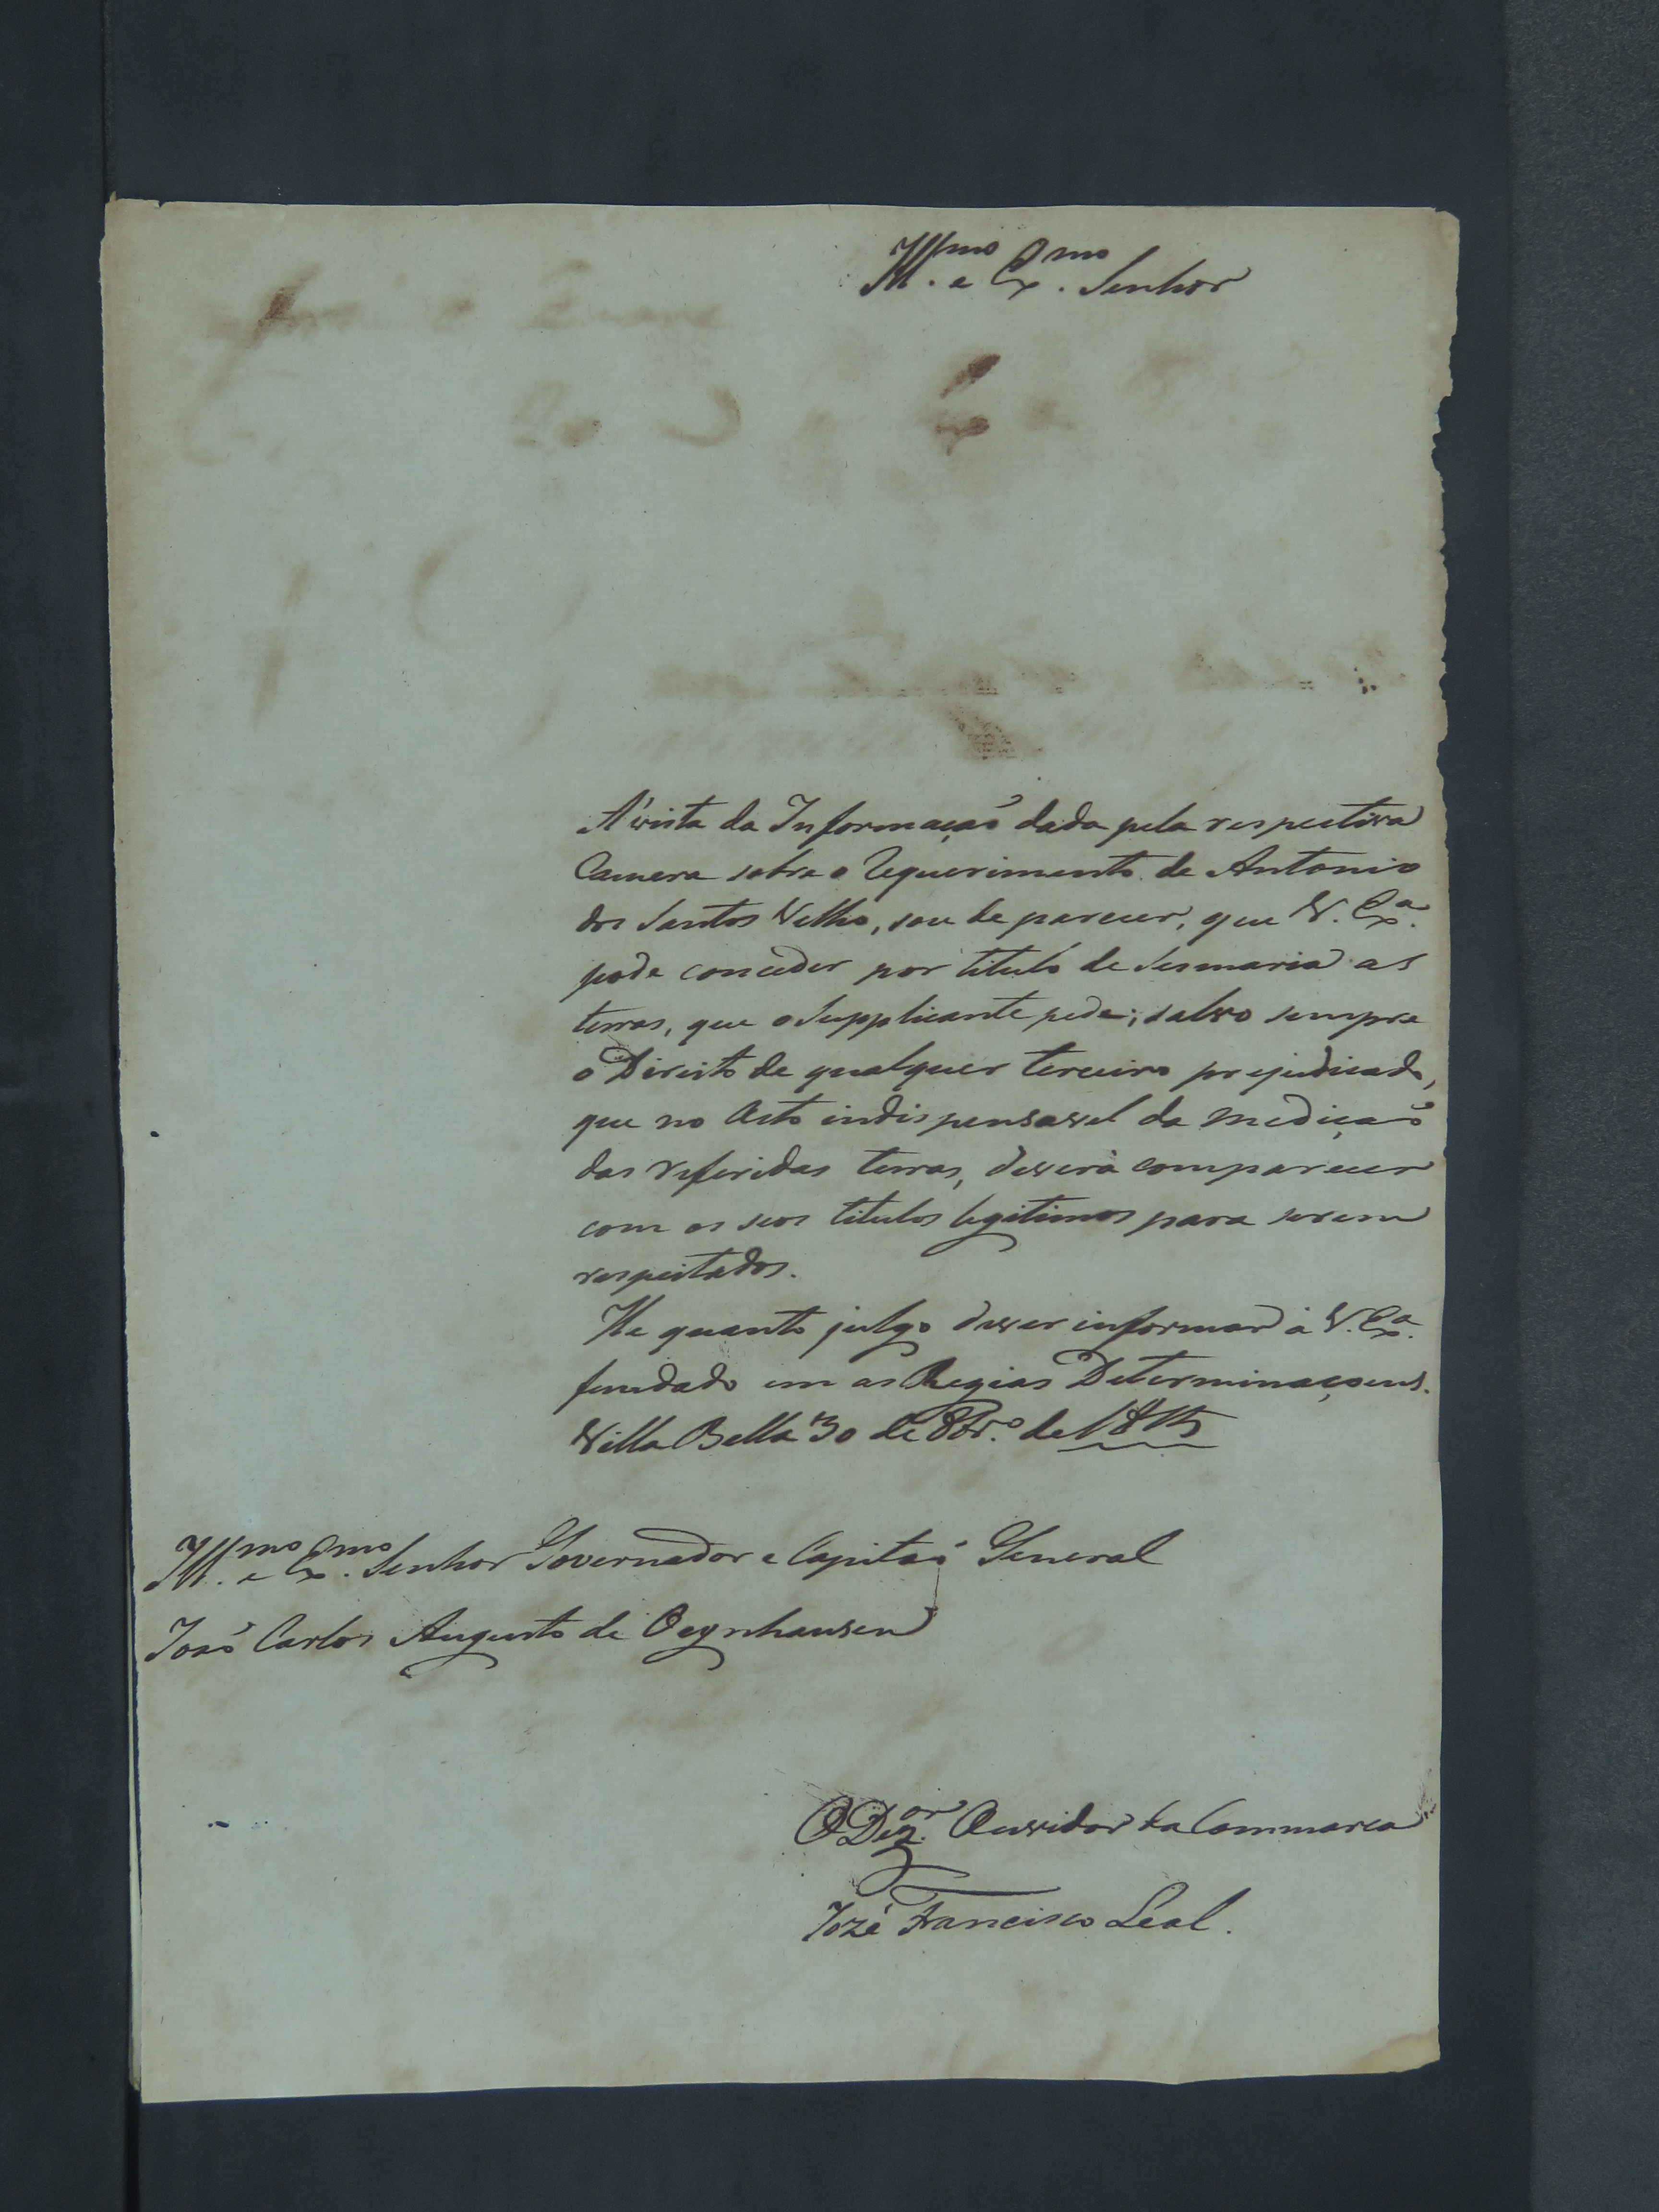 Ill.mo e Ex.mo Senhor
A' vista da Informaçaõ dada pela respectiva
Camera sobre o Requerimento de Antonio
dos Santos Velho, sou de parecer, que V. Ex.a
pode conceder por titulo de Sesmaria as
terras, que o Supplicante pede; salvo sempre
o Direito de qualquer terceiro prejudicado,
que no Acto indispensavel da Mediçaõ
das referidas terras, deverá comparecer
com os seos titulos legitimos para serem
respeitados.
He quanto julgo dever informar á V. Ex.a
fundado em as Regias Determinaçoens.
Villa Bella 30 de 8br.o de 1815
Ill.mo e Ex.mo Senhor Governador e Capitaõ General
Joaõ Carlos Augusto de Oeynhausen
O Dez.or Ouvidor da Commarca
Jozé Francisco Leal.